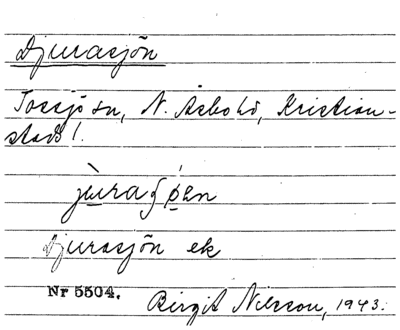 Djurasjön
Tossjö sn, N. Åsbo hd, Kristian-
stads l.
jùraʃǿen
Djurasjön ek
Nr 5504. Birgit Nilsson, 1943.